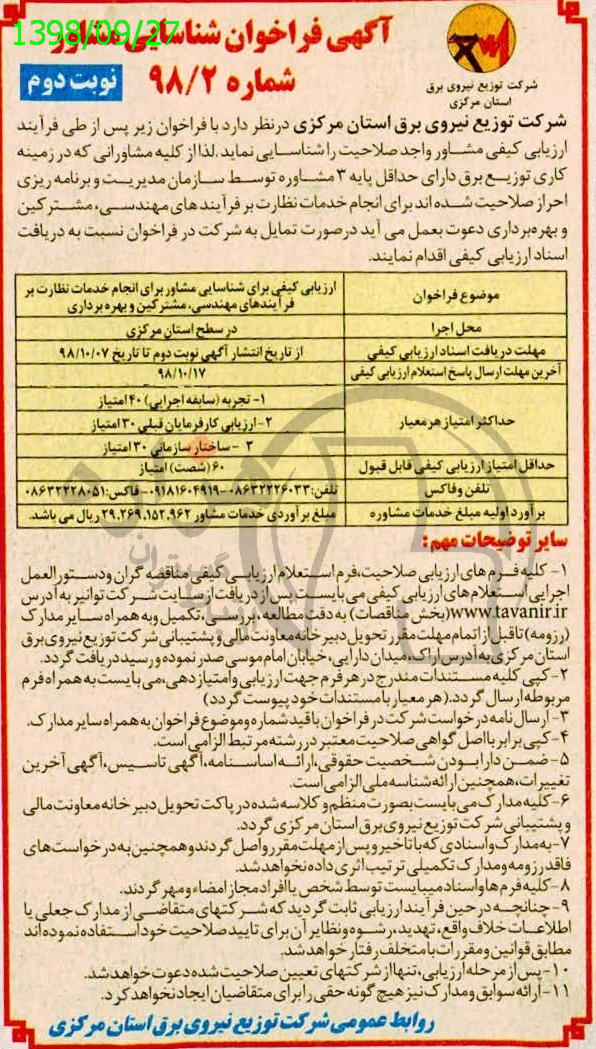 1398/09/27
آگهی فراخوان شناسایی مشاور
شماره ۹۸/۲
نوبت دوم
شرکت توزیع نیروی برق
استان مرکزی
شرکت توزیع نیروی برق استان مرکزی درنظر دارد با فراخوان زیر پس از طی فرآیند
ارزیابی کیفی مشاور واجد صلاحیت را شناسایی نماید. لذا از کلیه مشاورانی که در زمینه
کاری توزیع برق دارای حداقل پایه ۳ مشاوره توسط سازمان مدیریت و برنامه ریزی
احراز صلاحیت شده اند برای انجام خدمات نظارت بر فرآیندهای مهندسی، مشترکین
و بهره برداری دعوت بعمل می آید درصورت تمایل به شرکت در فراخوان نسبت به دریافت
اسناد ارزیابی کیفی اقدام نمایند.
موضوع فراخوان
ارزیابی کیفی برای شناسایی مشاور برای انجام خدمات نظارت بر
فرآیندهای مهندسی، مشترکین و بهره برداری
محل اجرا
در سطح استان مرکزی
مهلت دریافت اسناد ارزیابی کیفی
از تاریخ انتشار آگهی نوبت دوم تا تاریخ ۹۸/۱۰/۰۷
آخرین مهلت ارسال پاسخ استعلام ارزیابی کیفی
۹۸/۱۰/۱۷
حداکثر امتیاز هر معیار
۱- تجربه (سابقه اجرایی) ۴۰ امتیاز
۲- ارزیابی کارفرمایان قبلی ۳۰ امتیاز
۳ - ساختار سازمانی ۳۰ امتیاز
حداقل امتیاز ارزیابی کیفی قابل قبول
۶۰ (شصت) امتیاز
تلفن و فاکس
تلفن: ۰۸۶۳۲۲۲۶۰۳۳-۰۹۱۸۱۶۰۴۹۱۹ فاکس: ۰۸۶۳۲۲۲۸۰۵۱
برآورد اولیه مبلغ خدمات مشاوره
مبلغ برآوردی خدمات مشاور ۲۹,۲۶۹,۱۵۲,۹۶۲ ریال می باشد.
سایر توضیحات مهم:
۱- کلیه فرم های ارزیابی صلاحیت، فرم استعلام ارزیابی کیفی مناقصه گران و دستورالعمل
اجرایی استعلام های ارزیابی کیفی می بایست پس از دریافت از سایت شرکت توانیر به آدرس
www.tavanir.ir (بخش مناقصات) به دقت مطالعه، بررسی، تکمیل و به همراه سایر مدارک
(رزومه) تا قبل از اتمام مهلت مقرر تحویل دبیرخانه معاونت مالی و پشتیبانی شرکت توزیع نیروی برق
استان مرکزی به آدرس اراک، میدان دارایی، خیابان امام موسی صدر نموده و رسید دریافت گردد.
۲- کپی کلیه مستندات مندرج در هر فرم جهت ارزیابی و امتیازدهی، می بایست به همراه فرم
مربوطه ارسال گردد. (هر معیار با مستندات خود پیوست گردد)
۳- ارسال نامه درخواست شرکت در فراخوان با قید شماره و موضوع فراخوان به همراه سایر مدارک.
۴- کپی برابر با اصل گواهی صلاحیت معتبر در رشته مرتبط الزامی است.
۵- ضمن دارا بودن شخصیت حقوقی، ارائه اساسنامه، آگهی تاسیس، آگهی آخرین
تغییرات، همچنین ارائه شناسه ملی الزامی است.
۶- کلیه مدارک می بایست بصورت منظم و کلاسه شده در پاکت تحویل دبیرخانه معاونت مالی
و پشتیبانی شرکت توزیع نیروی برق استان مرکزی گردد.
۷- به مدارک و اسنادی که با تاخیر و پس از مهلت مقرر واصل گردند و همچنین به درخواست های
فاقد رزومه و مدارک تکمیلی ترتیب اثری داده نخواهد شد.
۸- کلیه فرم ها و اسناد میبایست توسط شخص یا افراد مجاز امضاء و مهر گردند.
۹- چنانچه در حین فرآیند ارزیابی ثابت گردید که شرکتهای متقاضی از مدارک جعلی یا
اطلاعات خلاف واقع، تهدید، رشوه و نظایر آن برای تایید صلاحیت خود استفاده نموده اند
مطابق قوانین و مقررات با متخلف رفتار خواهد شد.
۱۰- پس از مرحله ارزیابی، تنها از شرکتهای تعیین صلاحیت شده دعوت خواهد شد.
۱۱- ارائه سوابق و مدارک نیز هیچ گونه حقی را برای متقاضیان ایجاد نخواهد کرد.
روابط عمومی شرکت توزیع نیروی برق استان مرکزی